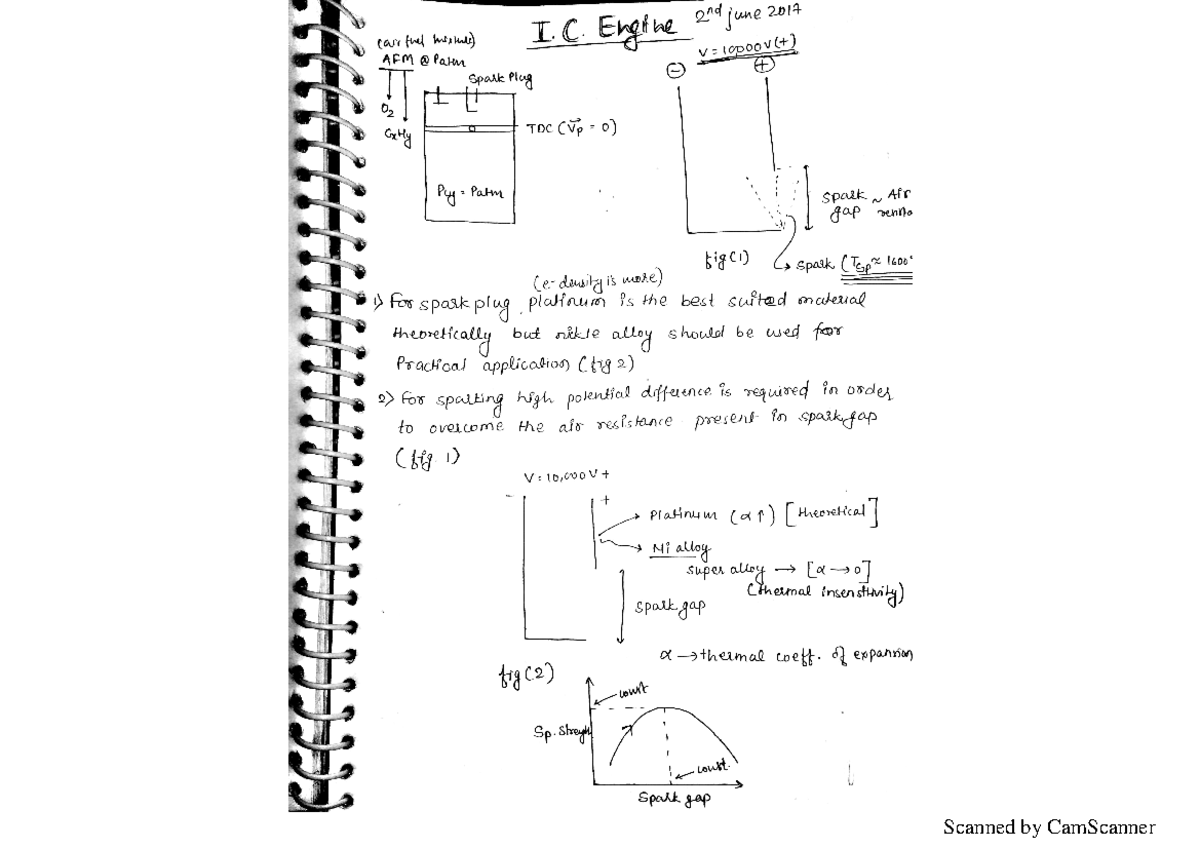 I.C. Engine
2nd june 2017
(air fuel mixture)
AFM @ Patm
O2
CxHy
Spark Plug
TDC (Vp = 0)
Pcy = Patm
V = 10,000V(+)
−
+
Spark ~ Air
gap
fig(1)
Spark (Tsp ≈ 1600°
(e- density is more)
1) For spark plug, platinum is the best suited material
theoretically but nikle alloy should be used for
Practical application (fig 2)
2) For sparking high potential difference is required in order
to overcome the air resistance present in spark gap
(fig. 1)
V = 10,000V+
−
+
Platinum (α↑) [theoretical]
Ni alloy
super alloy → [α→0]
(thermal insenstivity)
Spark gap
α → thermal coeff. of expansion
fig(2)
const
Sp. Stregth
const.
Spark gap
Scanned by CamScanner